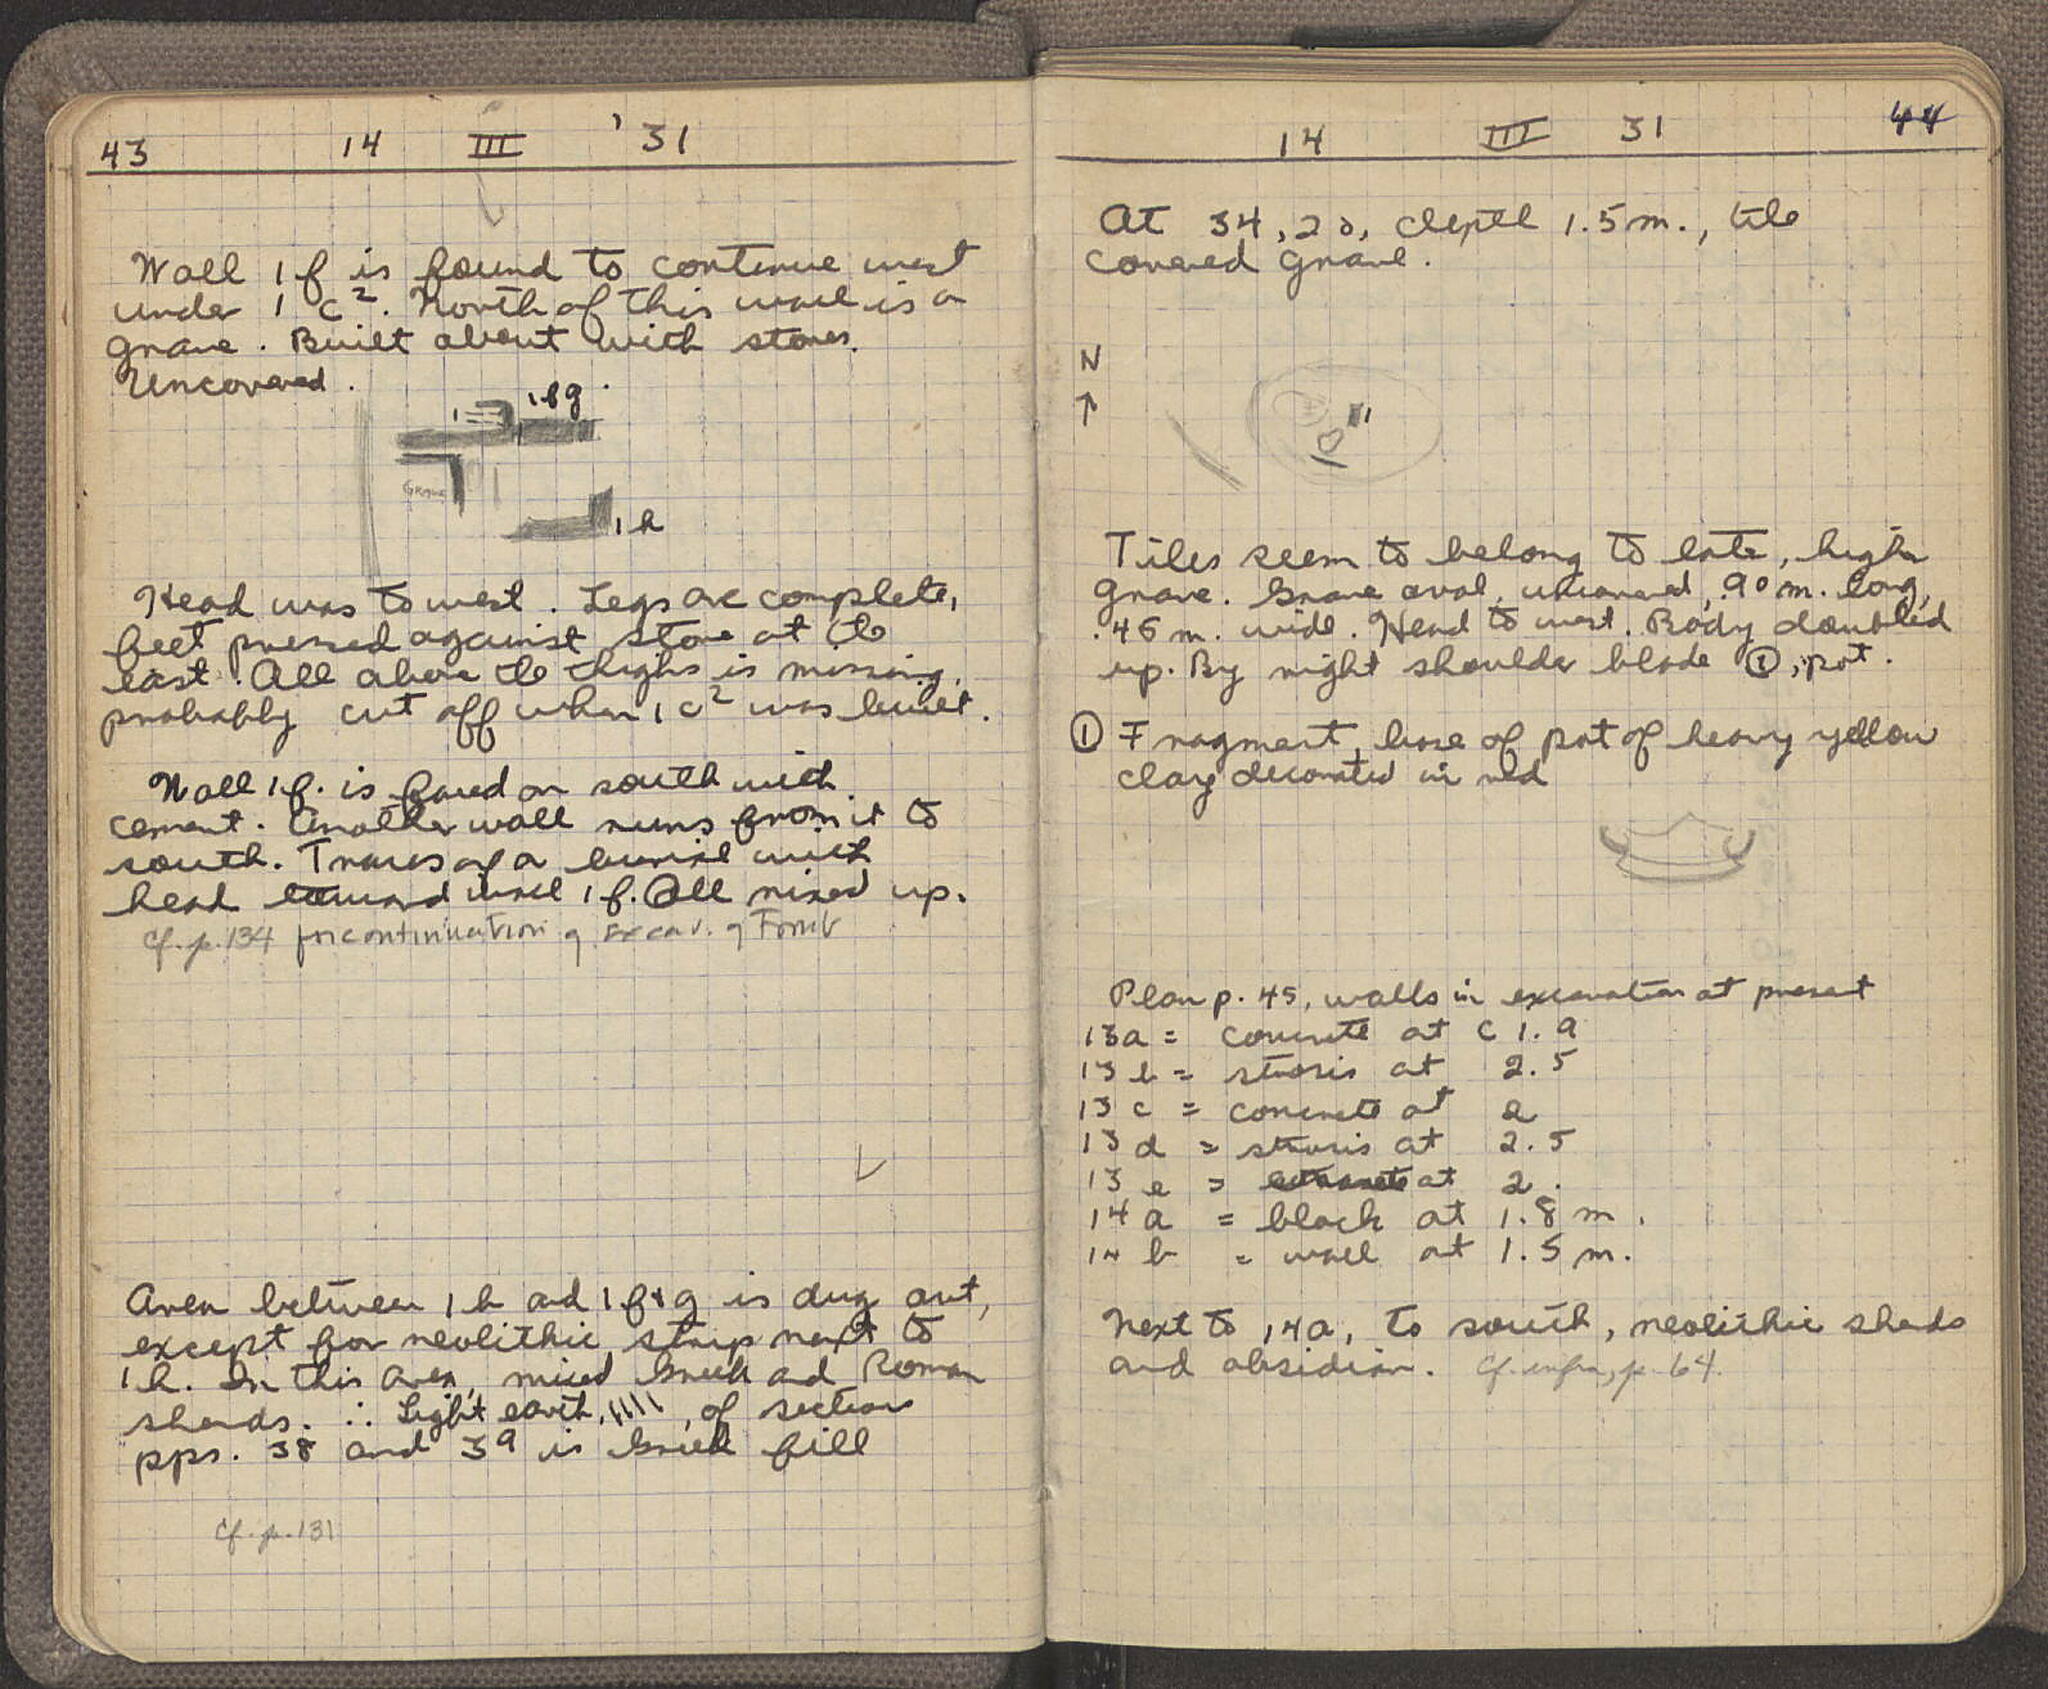 43 14 III '31
Wall 1f is found to continue west
under 1 c². North of this wall is a
grave. Built about with stones.
Uncovered.
1 f g
Grave
1 h
Head was to west. Legs are complete,
feet pressed against stone at the
east. All above the thighs is missing,
probably cut off when 1 c² was built.
Wall 1f. is faced on south with
cement. Another wall runs from it to
south. Traces of a burial with
head toward wall 1f. All mixed up.
cf. p. 134 for continuation of excav. of Tomb
Area between 1 h and 1 f & g is dug out,
except for neolithic strip next to
1 h. In this area, mixed Greek and Roman
sherds. ∴ Light earth, \\\\\, of section
pps. 38 and 39 is Greek fill
cf. p. 131
14 III 31 44
At 34, 20, depth 1.5 m., tile
covered grave.
N
↑
1
Tiles seem to belong to late, higher
grave. Grave oval, uncovered, .90 m. long,
.45 m. wide. Head to west. Body doubled
up. By right shoulder blade ①, pot.
① Fragment, base of pot of heavy yellow
clay decorated in red
Plan p. 45, walls in excavation at present
13a = concrete at c 1.9
13 b = stosis at 2.5
13 c = concrete at 2
13 d = stosis at 2.5
13 e = at 2.
14 a = block at 1.8 m.
14 b = wall at 1.5 m.
Next to 14a, to south, neolithic sherds
and obsidian. cf. infra, p. 64.